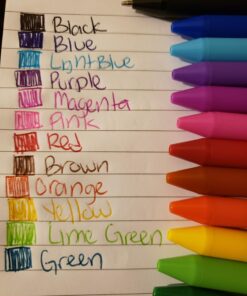 Black
Blue
Light Blue
Purple
Magenta
Pink
Red
Brown
Orange
Yellow
Lime Green
Green